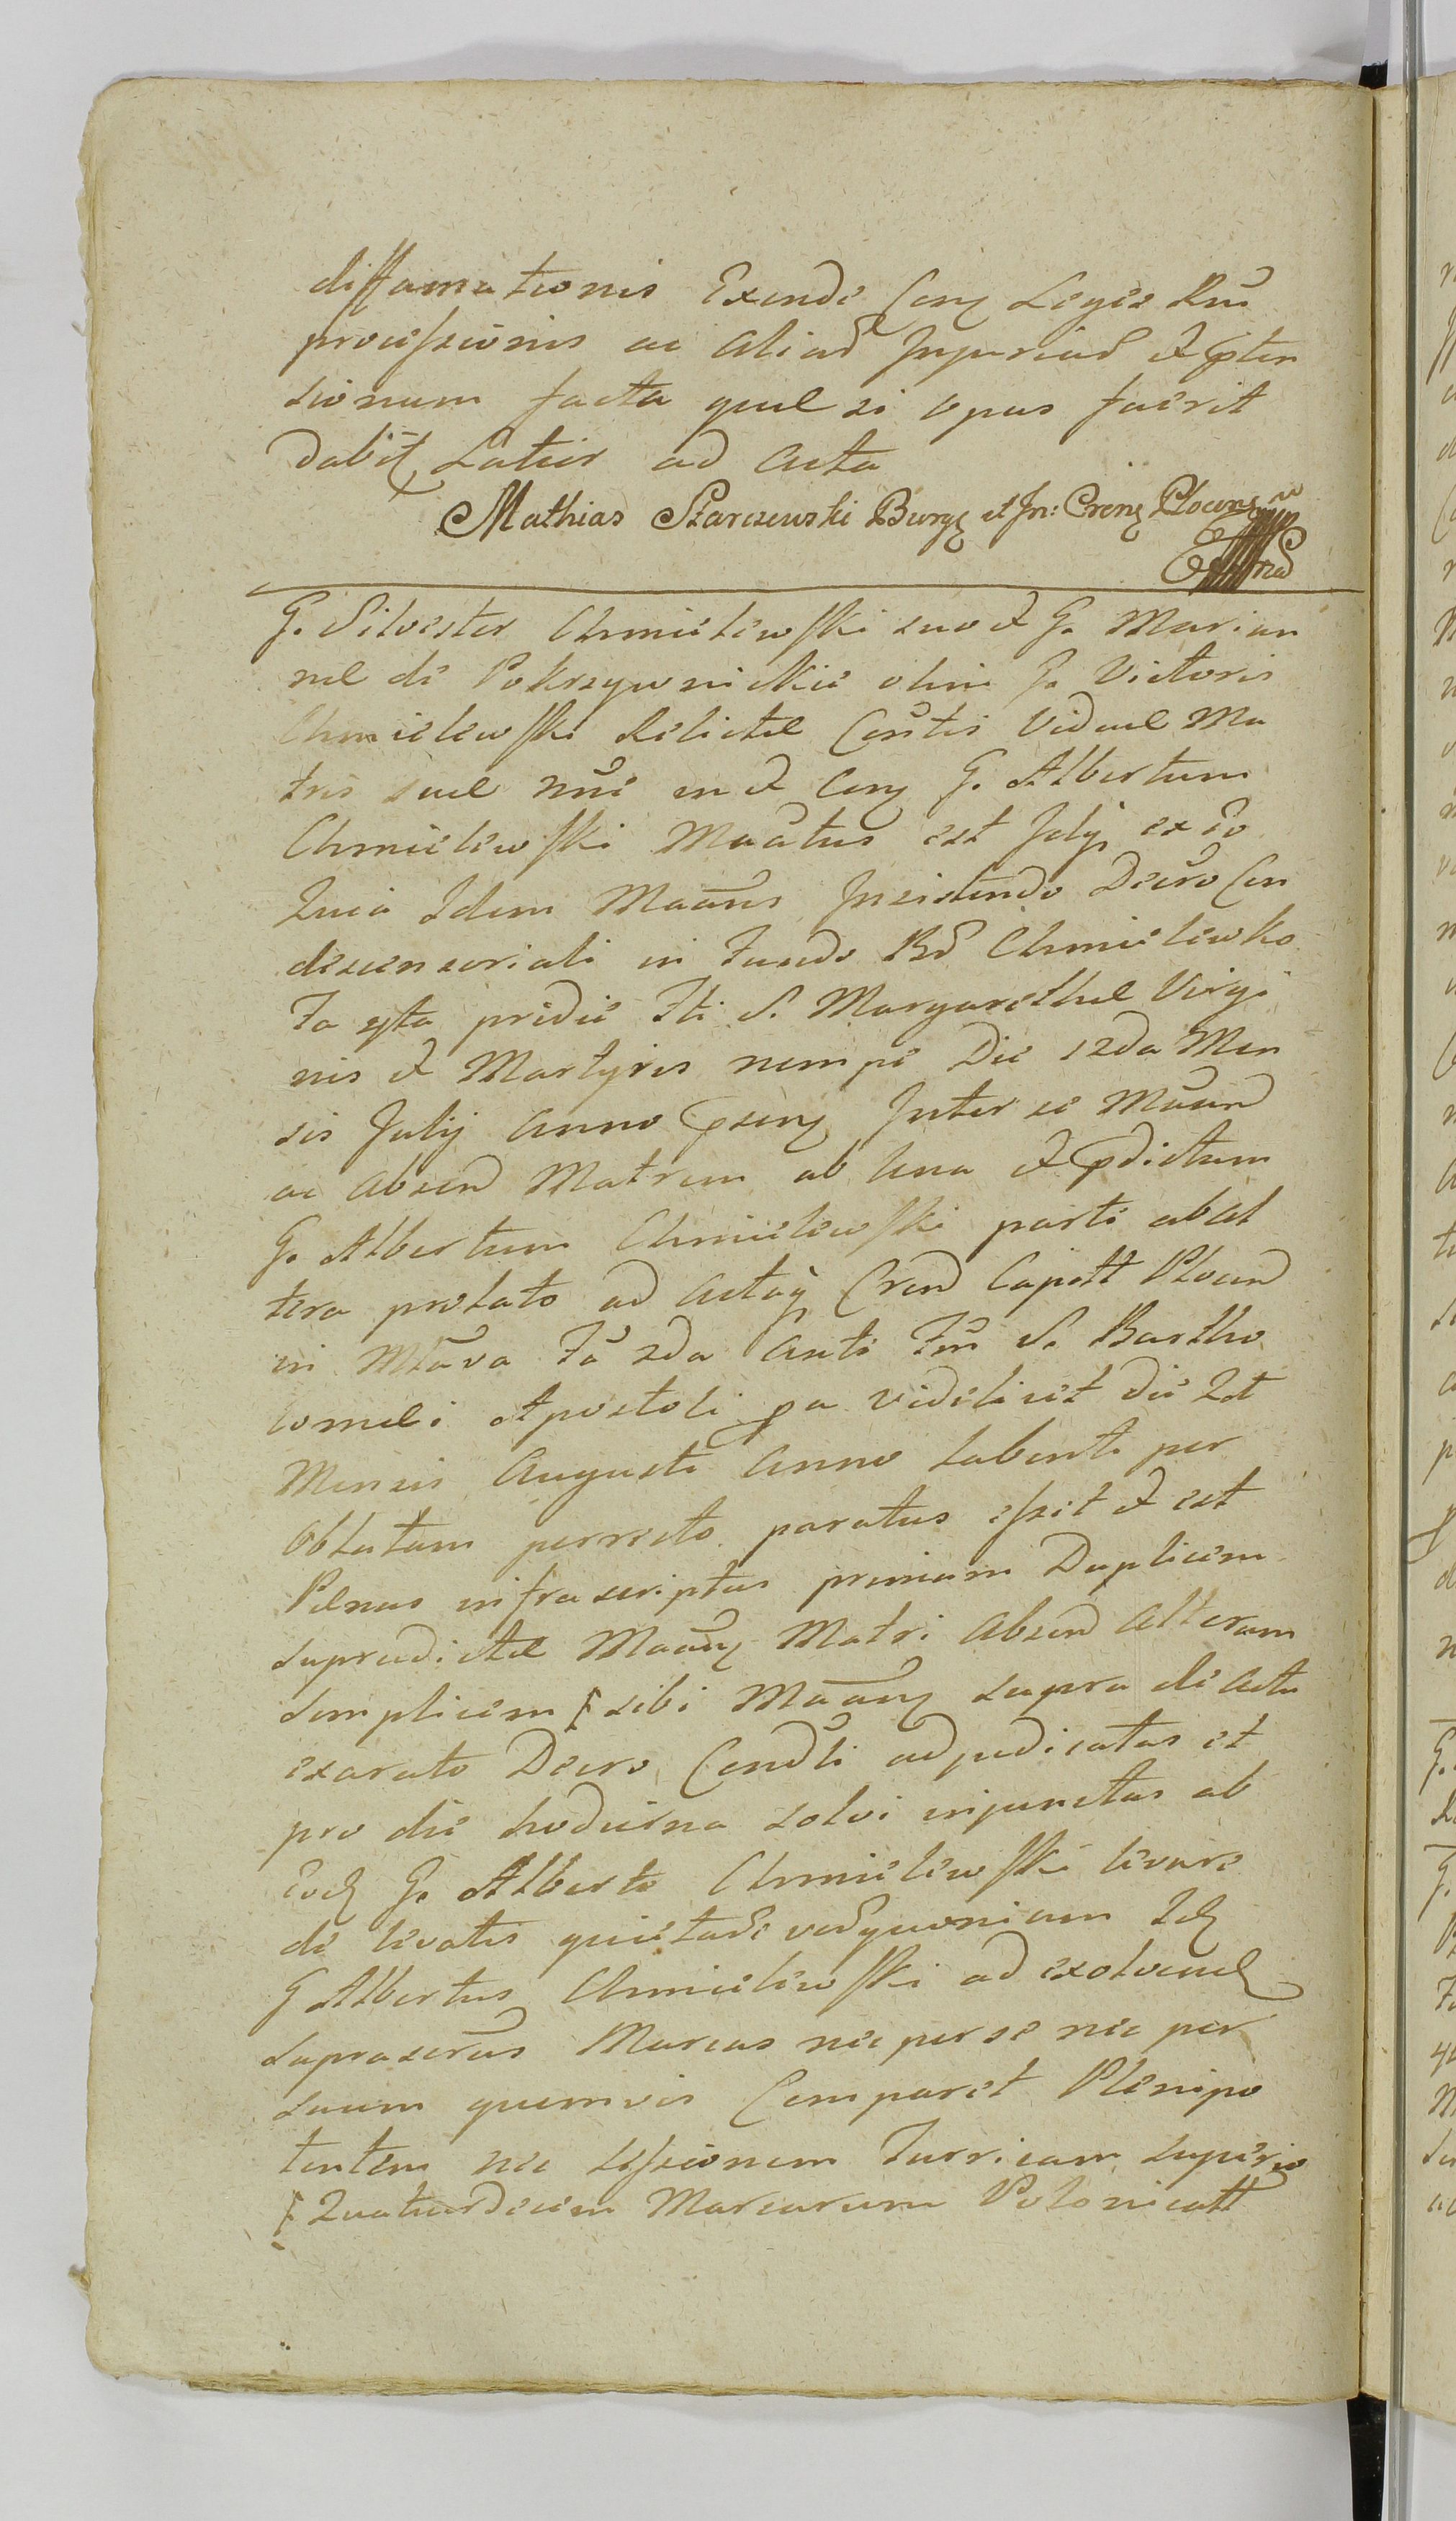 diffamationis Exinde Cerns Legis Rnĩ
processionis ac aliad Injuriad et pten
sionum facta quæ si opus fuerit
dabit Latior ad acta
Mathias Starczewski Burgs et In: Crens Plocens
G. Silvester Chmielewski suo et G. Marian
næ de Pokrzywnickie olim G. Victoris
Chmielewski Relictæ Consĩtis Viduæ Ma
tris suæ nõie in et Cerns G. Albertum
Chmielewski Maãtus est July ex eo
Quia Idem Maãns Insistendo Decro Con
descensoriali in Fundo Bd Chmielewko
Fa 5ta pridie Fti S. Margarethæ Virgi
nis et Martyris nempe Die 12da Men
sis July anno psens Inter se Maand
ac absend Matrem ab una et pdictum
G. Albertum Chmielewski parte ab al
tera prolato ad actaq Crend Capett Plocend
in Mlava Fa 2da ante Ftũ S. Bartho
lomæi Apostoli pa videlicet die 21
Mensis Augusti anno labente per
Oblatam porrecto paratus essit et est
Pænas infrascriptas primam Duplicem
supradictæ Maans Matri absend alteram
simplicem sibi Maans supra de actu
exarato Decro Condlĩ adjudicatas et
pro die hodierna solvi injunctas ab
Eod G. Alberto Chmielewski levare
de levatis quietare verũ quoniam Id
G Albertus Chmielewski ad exolvend
suprascrãs Marcas nec per se nec per
suum quemvis Comparet Plenipo
tentem nec sessionem Turrium superio
Quatuordecim Marcarum Polonicatt